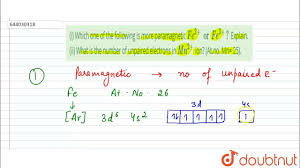 644030318
(i) Which one of the following is more paramagnetic Fe²⁺ or Fe³⁺ ? Explain.
(ii) What is the number of unpaired electrons in Mn²⁺ ion?
① Paramagnetic → no of unpaired e-
Fe At. No. 26
↓
3d 4s
[Ar] 3d⁶ 4s²
doubtnut